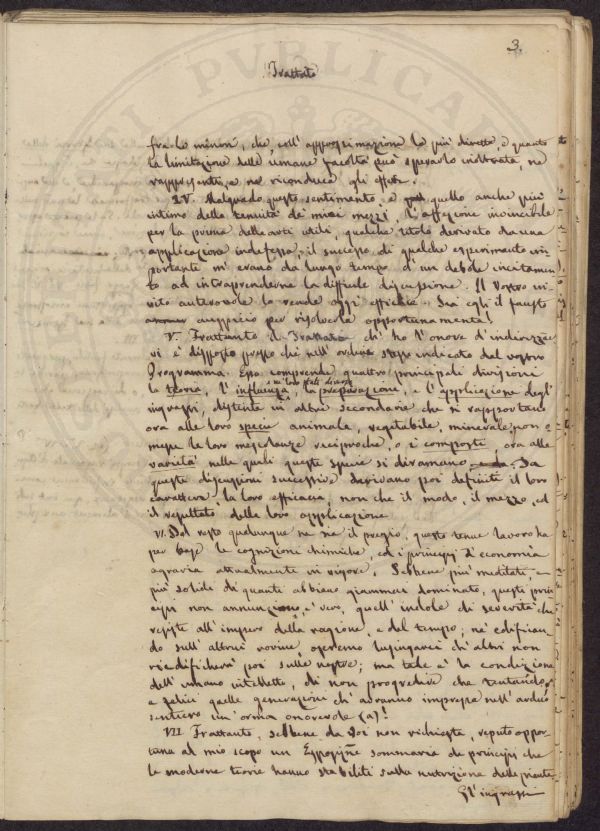 3.
Trattato
fra le minori, che coll' approssimazione la più diretta, e quanto
la limitazione delle umane facoltà può sperarlo inoltrata, ne
rappresenti, e ne riconduca gli effetti.
IV. Malgrado questo sentimento, e quello anche più
intimo della tenuità de' miei mezzi, l'affezione invincibile
per la prima delle arti utili, qualche titolo derivato da una
applicazione indefessa, il successo di qualche esperimento im-
portante m'erano da lungo tempo d'un debole incitamen-
to ad intraprenderne la difficile discussione. Il vostro in-
vito autorevole lo rende oggi efficace. Sia egli il fausto
auspicio per risolverla opportunamente!
V. Frattanto il Trattato ch'ho l'onore d'indirizzar-
vi è disposto presso che nell'ordine stesso indicato dal vostro
Programma. Esso comprende quattro principali divisioni
la teoria, l'influenza, la preparazione, e l'applicazione degl'
ne' loro stati diversi
ingrassi, distinte in altre secondarie che si rapportano
ora alle loro specie animale, vegetabile, minerale, non o-
messe le loro mescolanze reciproche, o i composti ora alle
varietà nelle quali queste specie si diramano. Da
queste discussioni successive derivano poi definiti il loro
carattere, la loro efficacia, non che il modo, il mezzo, ed
il resultato della loro applicazione.
VI. Del resto qualunque ne sia il pregio, questo tenue lavoro ha
per base le cognizioni chimiche, ed i principj d'economia
agraria attualmente in vigore. Sebbene più meditati, e
più solidi di quanti abbiano giammai dominato, questi prin-
cipj non annunziano, è vero, quell'indole di severità che
resiste all'impero della ragione, e del tempo; nè edifican-
do sull'altrui rovine, potremo lusingarci ch'altri non
riedificherà poi sulle nostre; ma tale è la condizione
dell'umano intelletto, di non progredire che tentando,
e felici quelle generazioni ch'avranno impressa nell'arduo
sentiero un'orma onorevole (a)!
VII. Frattanto, sebbene da Voi non richiesta, reputo oppor-
tuna al mio scopo un Esposizne sommaria de' principj che
le moderne teorie hanno stabiliti sulla nutrizione delle piante.
Gl'ingrassi